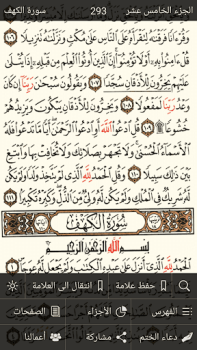 الجزء الخامس عشر 293 سورة الكهف
وَقُرْآنًا فَرَقْنَاهُ لِتَقْرَأَهُ عَلَى النَّاسِ عَلَىٰ مُكْثٍ وَنَزَّلْنَاهُ تَنزِيلًا ١٠٦
قُلْ ءَامِنُوا بِهِ أَوْ لَا تُؤْمِنُوا إِنَّ الَّذِينَ أُوتُوا الْعِلْمَ مِن قَبْلِهِ إِذَا يُتْلَىٰ
عَلَيْهِمْ يَخِرُّونَ لِلْأَذْقَانِ سُجَّدًا ١٠٧ وَيَقُولُونَ سُبْحَانَ رَبِّنَا إِن كَانَ
وَعْدُ رَبِّنَا لَمَفْعُولًا ١٠٨ وَيَخِرُّونَ لِلْأَذْقَانِ يَبْكُونَ وَيَزِيدُهُمْ
خُشُوعًا ۩ ١٠٩ قُلِ ادْعُوا اللَّهَ أَوِ ادْعُوا الرَّحْمَٰنَ أَيًّا مَّا تَدْعُوا فَلَهُ
الْأَسْمَاءُ الْحُسْنَىٰ وَلَا تَجْهَرْ بِصَلَاتِكَ وَلَا تُخَافِتْ بِهَا وَابْتَغِ
بَيْنَ ذَٰلِكَ سَبِيلًا ١١٠ وَقُلِ الْحَمْدُ لِلَّهِ الَّذِي لَمْ يَتَّخِذْ وَلَدًا وَلَمْ يَكُن لَّهُ
شَرِيكٌ فِي الْمُلْكِ وَلَمْ يَكُن لَّهُ وَلِيٌّ مِّنَ الذُّلِّ وَكَبِّرْهُ تَكْبِيرًا ١١١
سُورَةُ الْكَهْفِ
بِسْمِ اللَّهِ الرَّحْمَٰنِ الرَّحِيمِ
الْحَمْدُ لِلَّهِ الَّذِي أَنزَلَ عَلَىٰ عَبْدِهِ الْكِتَابَ وَلَمْ يَجْعَل لَّهُ عِوَجًا ١
حفظ علامة انتقال الى العلامة
الفهرس الأجزاء الصفحات
دعاء الختم مشاركة أعمالنا